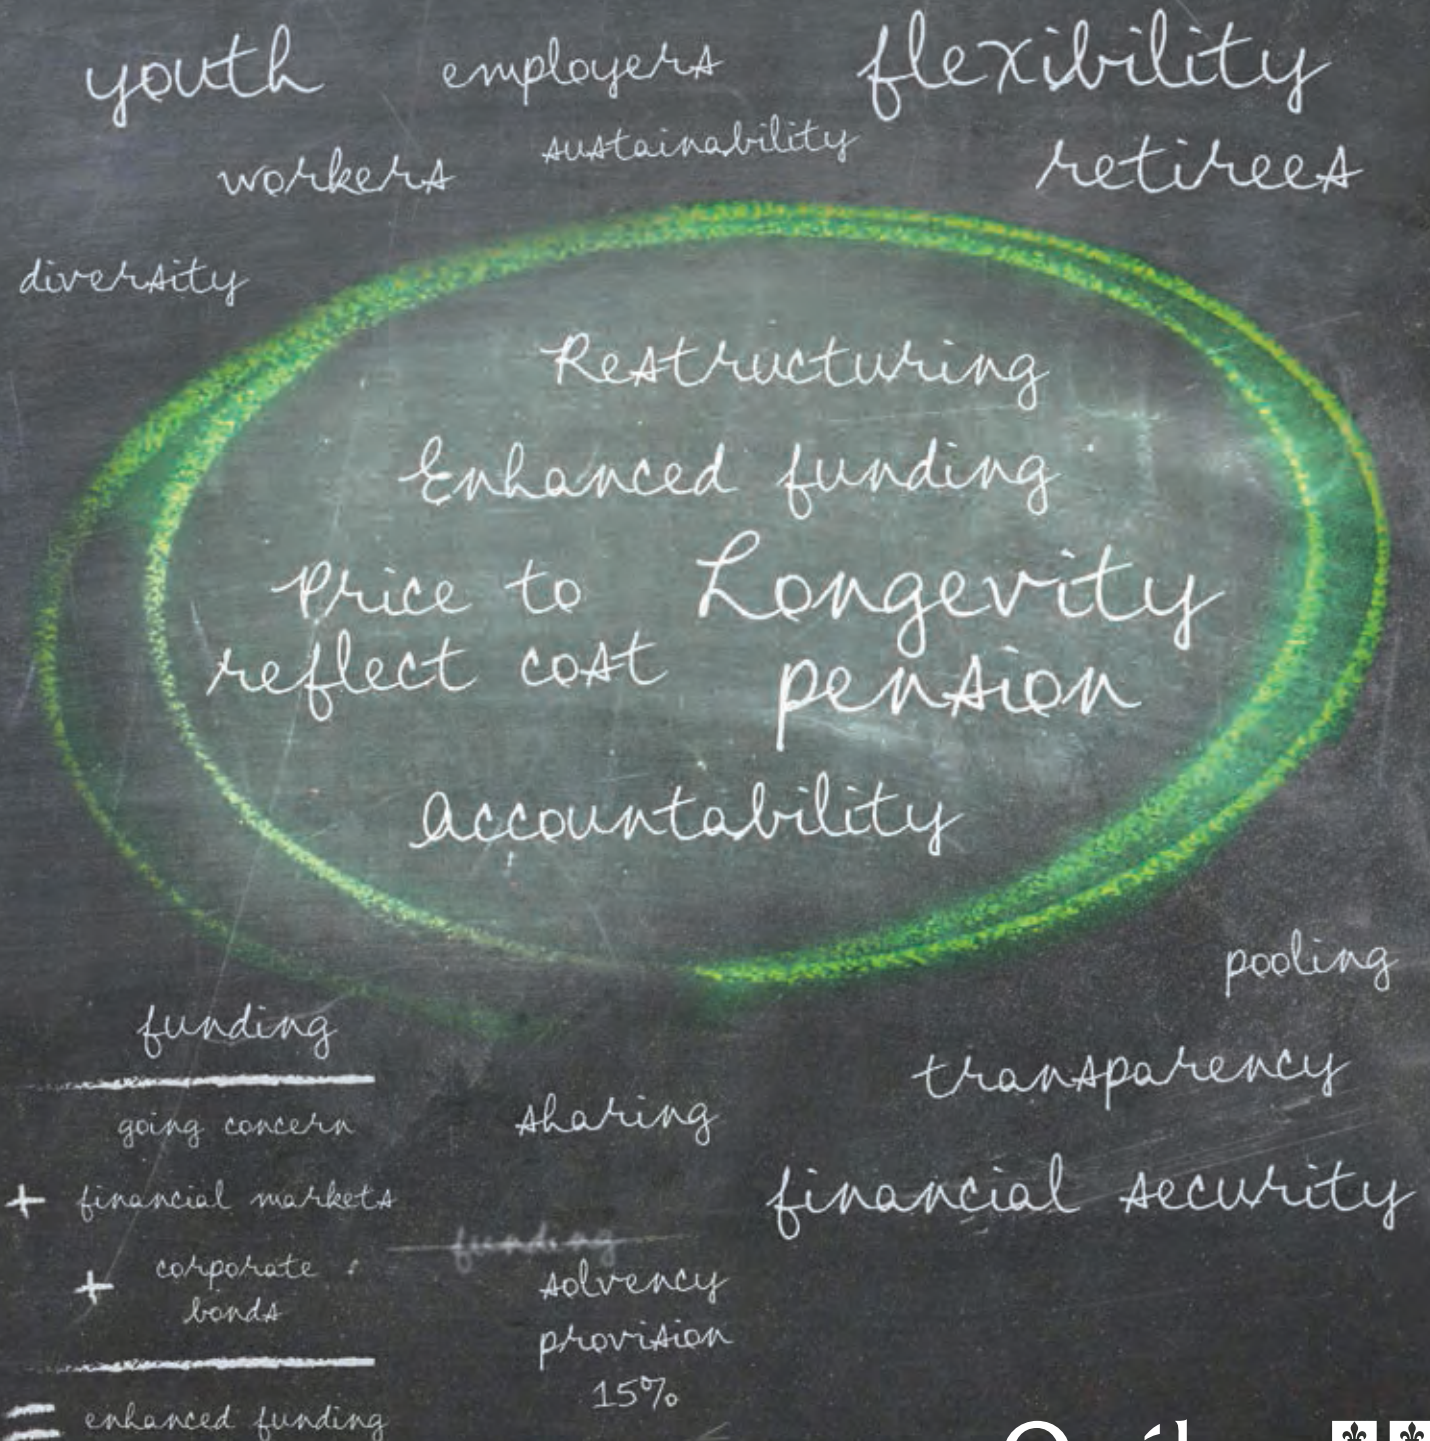 youth employers flexibility
workers sustainability retirees
diversity
Restructuring
Enhanced funding
Price to reflect cost
Longevity pension
Accountability
pooling
funding
going concern
+ financial markets
+ corporate bonds
= enhanced funding
sharing
funding
solvency
provision
15%
transparency
financial security